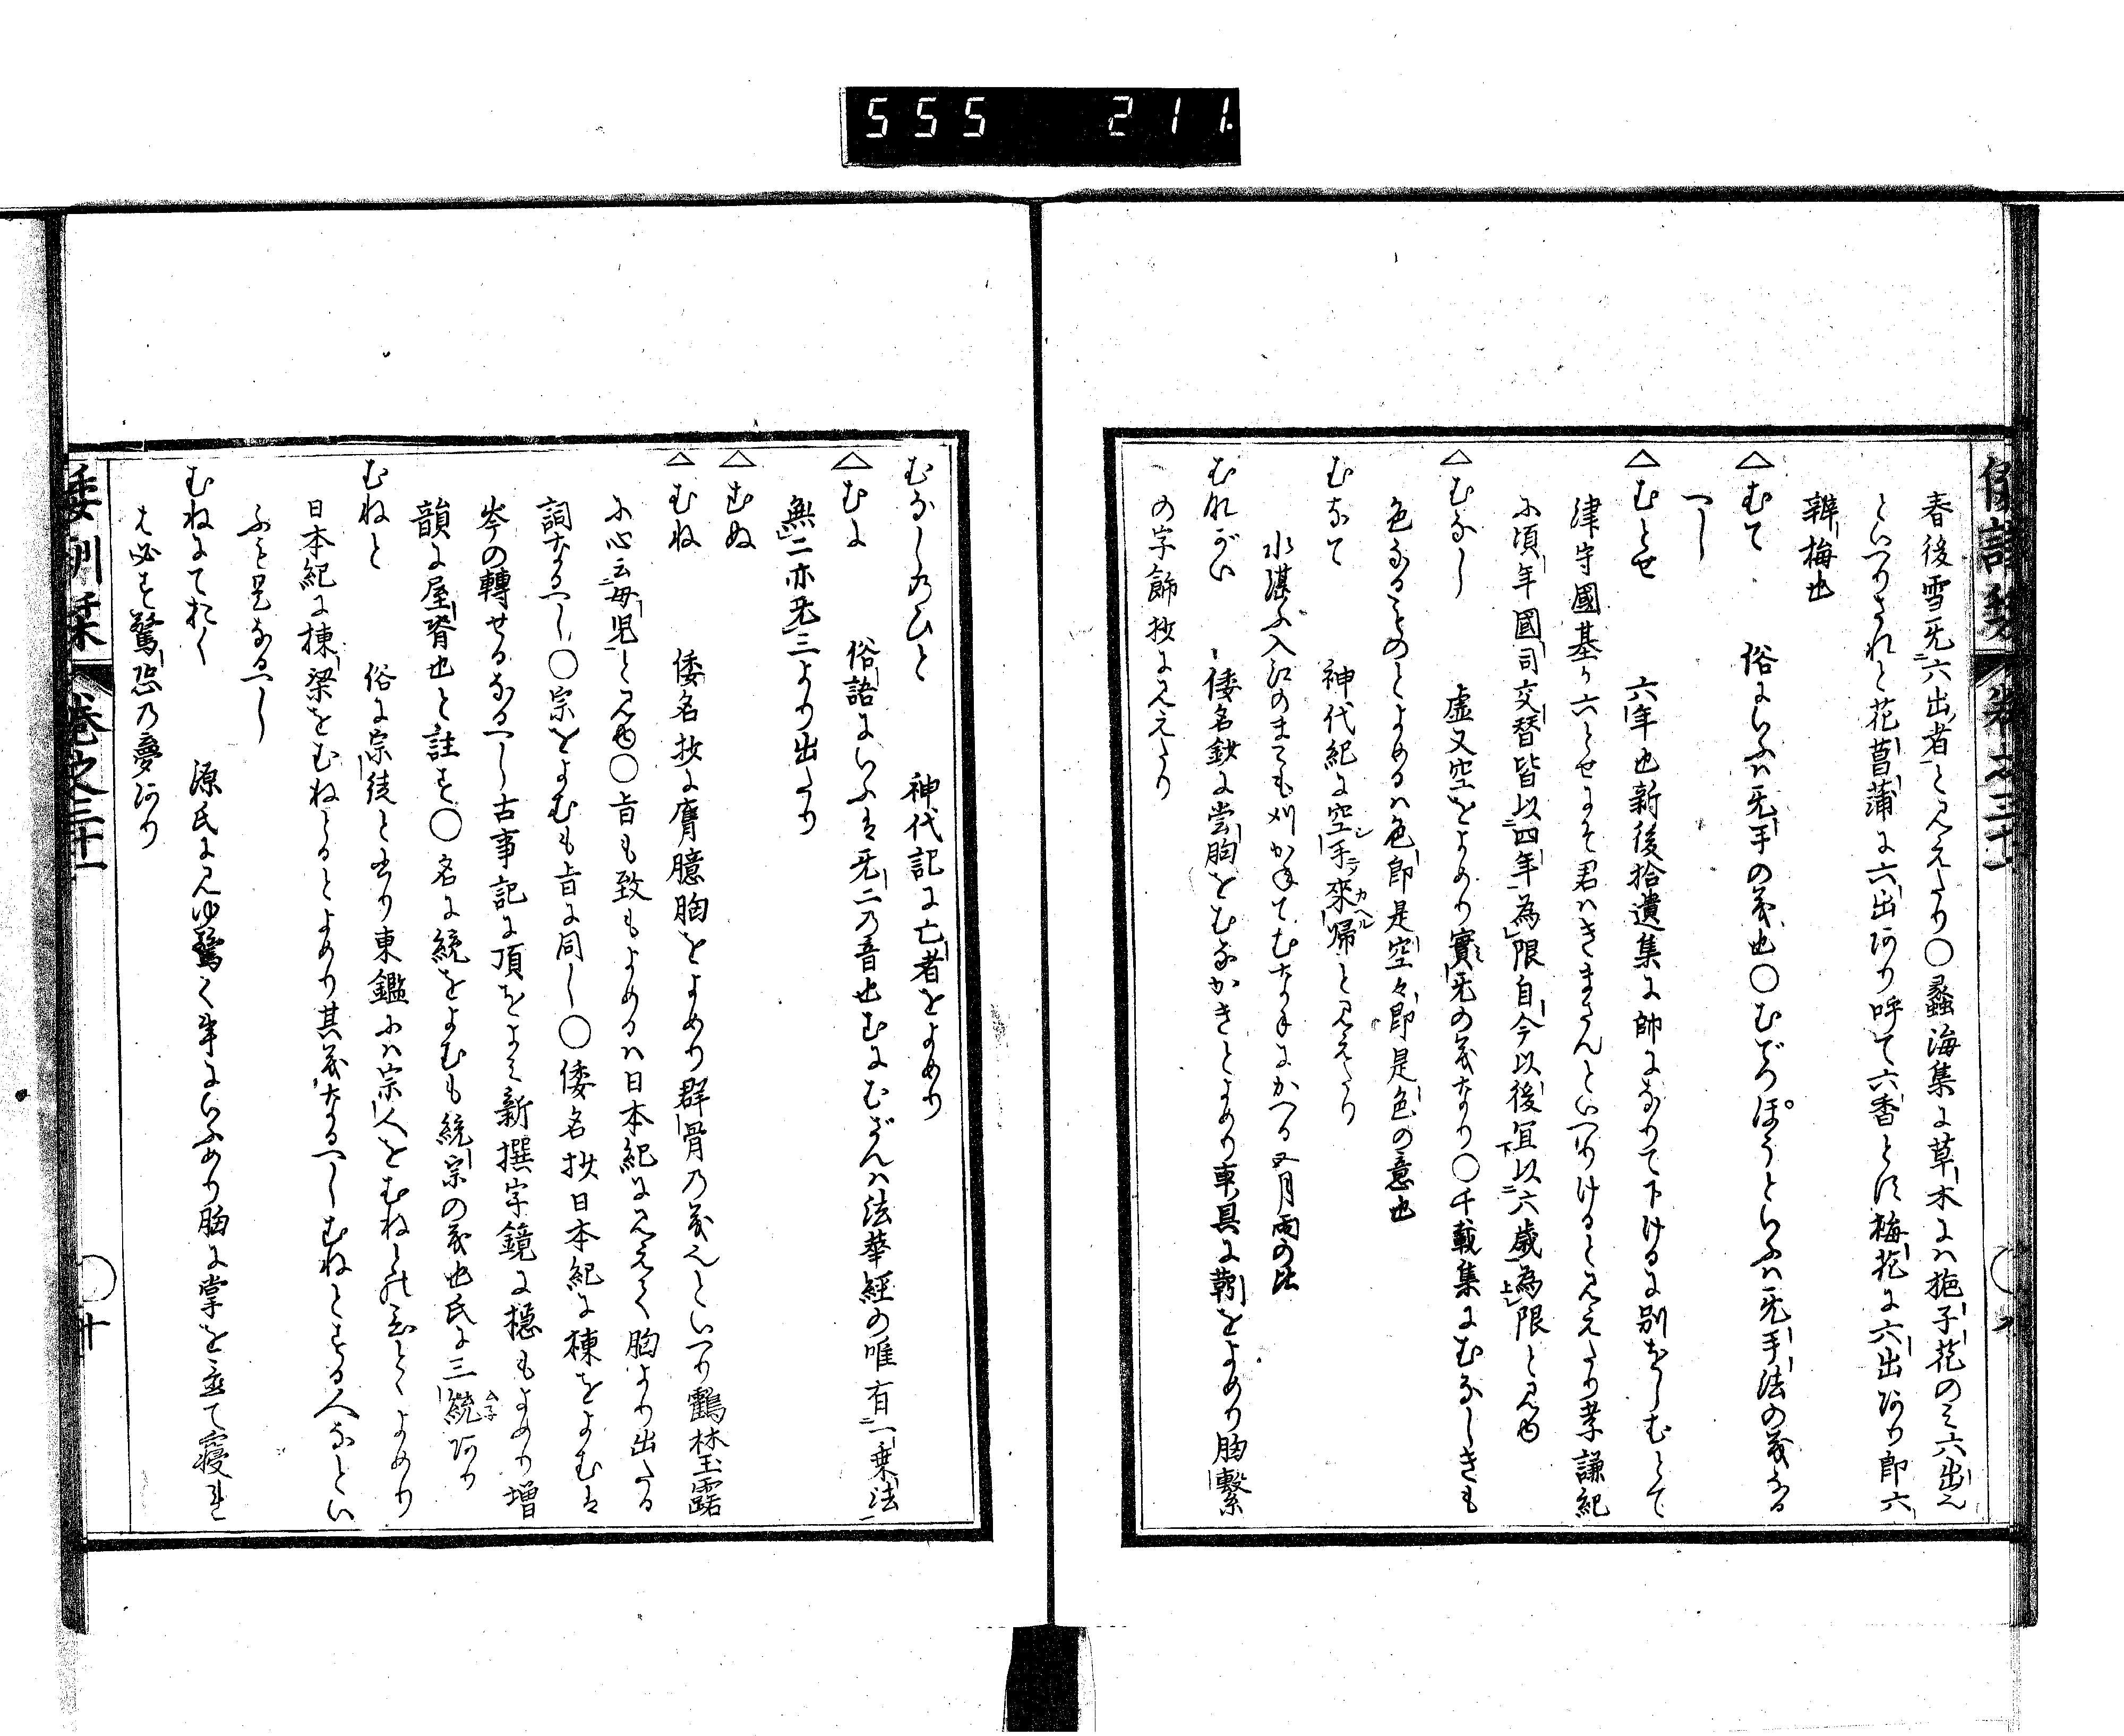 555 211
春後雪无六出者と見えたり〇蠡海集に草木は梔子花のミ六出也
といへりされと花菖蒲に六出あり呼て六香とす梅花に六出あり即六
辨梅也
△むて 俗にいふハ无手の義也〇むでつぽうといふハ无手法の義なる
へし
△むとせ 六年也新後拾遺集に帥になりて下けるに別をしむとて
津守國基か六とせにそ君ハきまさんといへりけると見えたり孝謙紀
に頃年國司交替皆以四年為限自今以後宜以六歳為限と見ゆ
△むなし 虚又空をよめり實无の義なり〇千載集にむなしきも
色なるものとよめるハ色即是空々即是色の意也
むなて 神代紀に空手來歸と見えたり
水湛ふ入江のまこも刈かねてむなてにかへる五月雨の比
むながい 倭名鈔に當胸をむなかきとよめり車具に靷をよめり胸繋
の字飾抄に見えたり
倭訓栞 巻之三十一 〇九
むなしのひと 神代記に亡者をよめり
△むに 俗語にいふは无二の音也むにむざんハ法華經の唯有一乗法
無二亦无三より出たり
△むぬ
△むね 倭名抄に膺臆胸をよめり群骨乃義也といへり鶴林玉露
に心云母児と見ゆ〇旨も致もよめるハ日本紀に見えて胸より出たる
詞なるへし〇宗をよむも旨に同し〇倭名抄日本紀に棟をよむは
岑の轉せるなるへし古事記に頂をよミ新撰字鏡に檼もよめり増
韻に屋脊也と註す〇名に統をよむも統宗の義也氏に三統あり
むねと 俗に宗徒と書り東鑑にハ宗人をむねとの者とよめり
日本紀に棟梁をむねとるとよめり其義なるへしむねとする人なとい
ふも是なるへし
むねにておく 源氏に見ゆ驚く事にいふめり胸に掌を立て寝れ
は必す驚恐乃夢あり
倭訓栞 巻之三十一 〇十